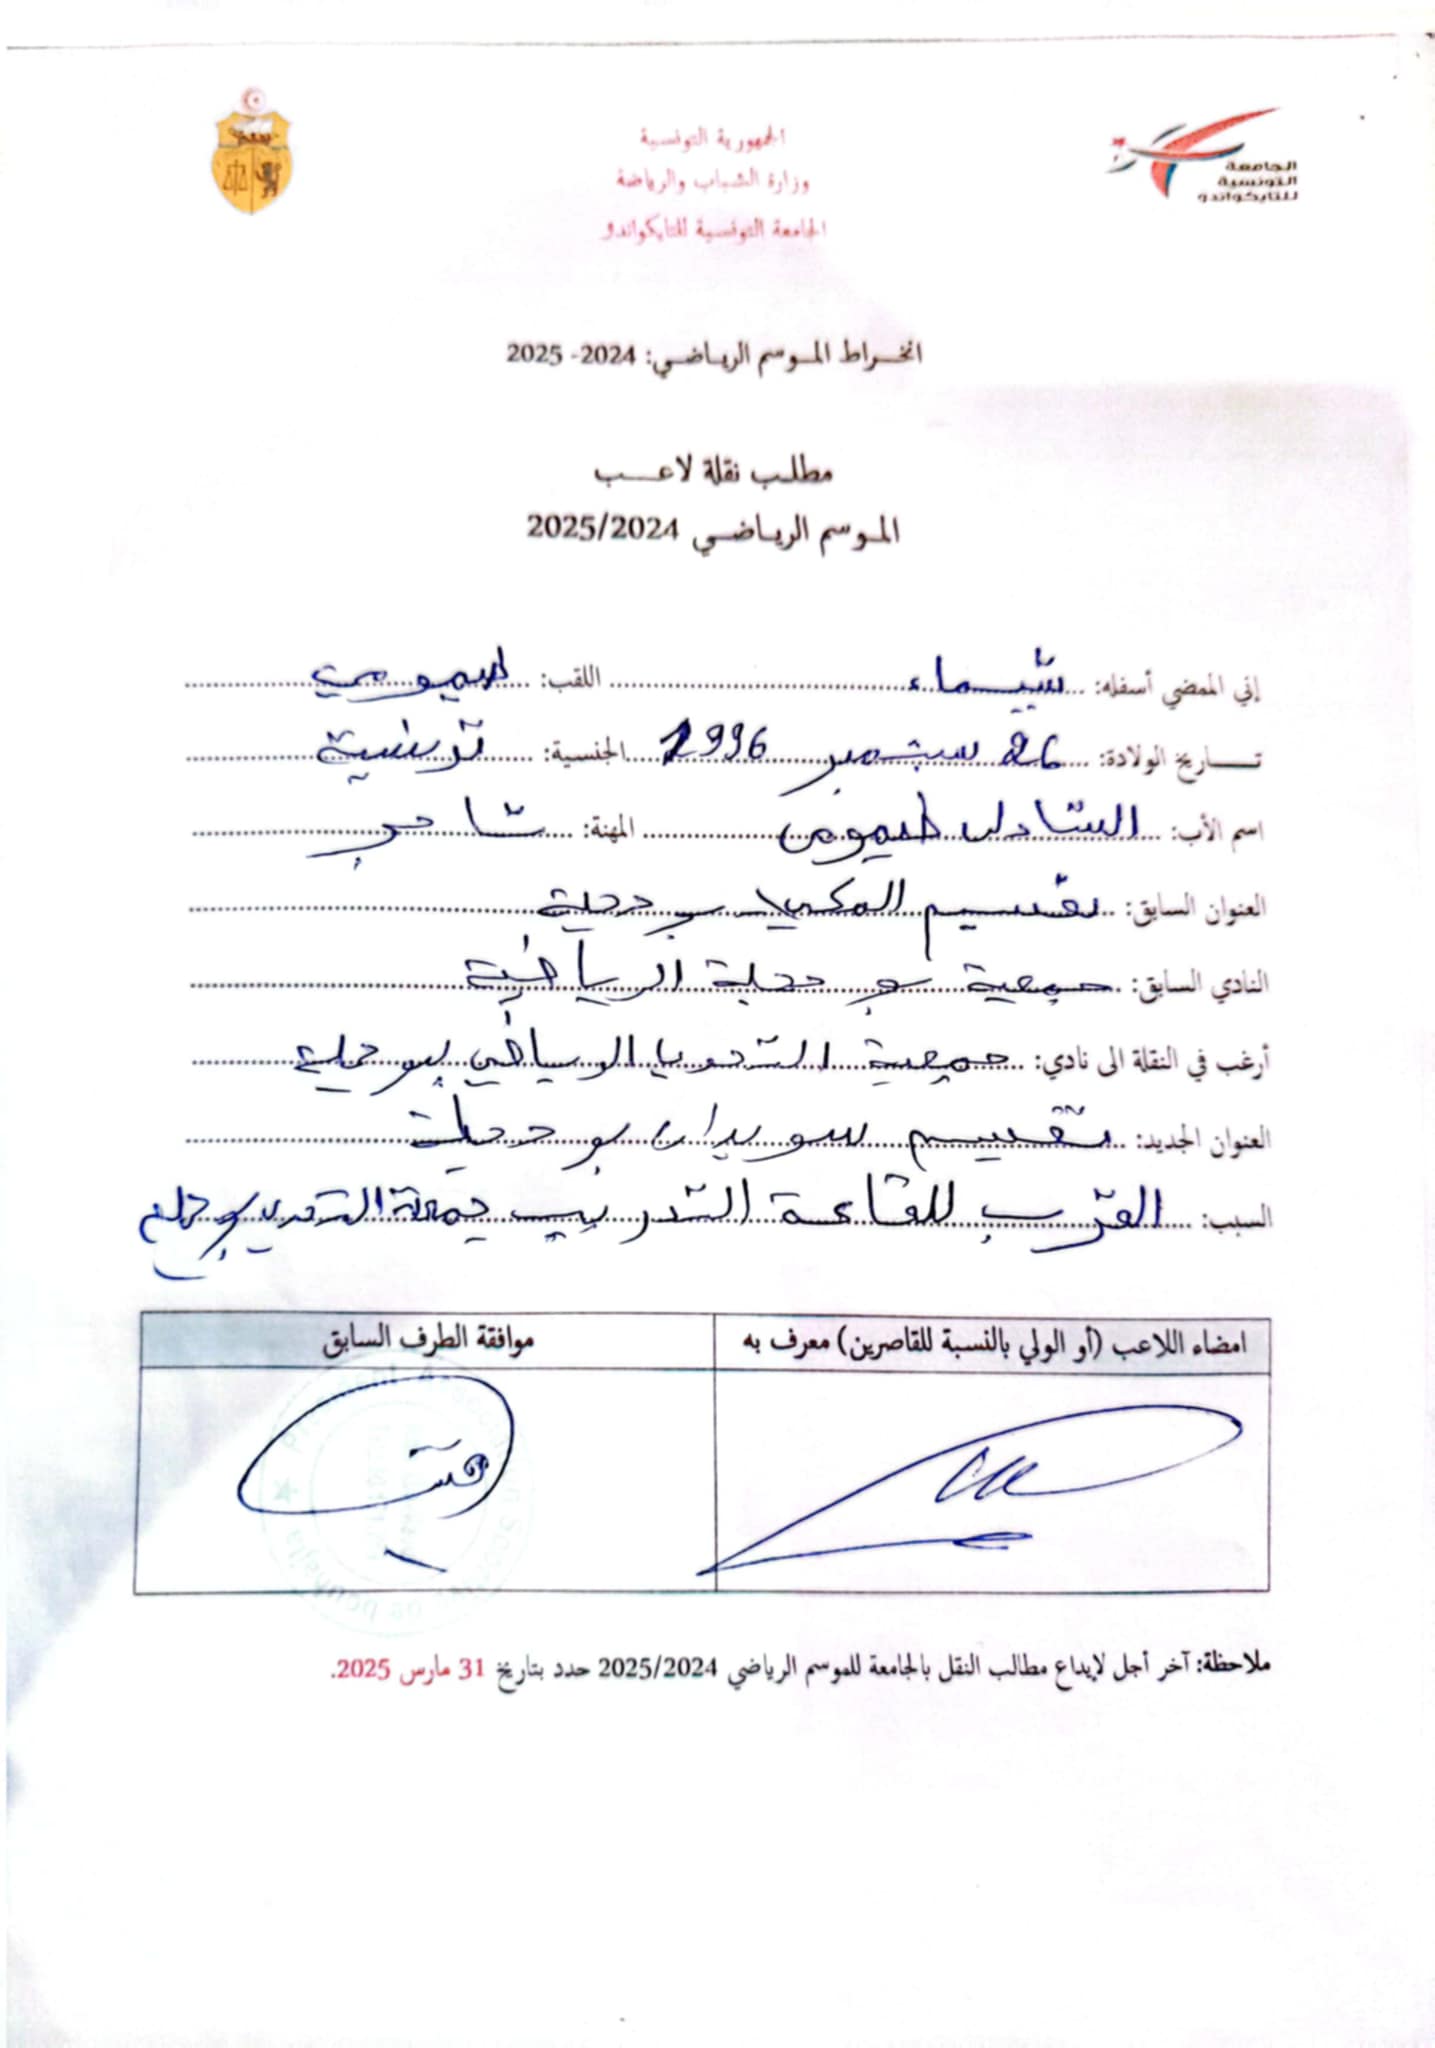 الجمهورية التونسية
وزارة الشباب والرياضة
الجامعة التونسية للتايكواندو
الجامعة
التونسية
للتايكواندو
انخراط الموسم الرياضي: 2024- 2025
مطلب نقلة لاعب
الموسم الرياضي 2025/2024
إني الممضي أسفله: شيماء اللقب:
تاريخ الولادة: 26 سبتمبر 1996 الجنسية: تونسية
اسم الأب: الشاذلي المهنة: تاجر
العنوان السابق: تقسيم المكي بوحجلة
النادي السابق: جمعية بوحجلة الرياضية
أرغب في النقلة الى نادي: جمعية الرياضي ببوحجلة
العنوان الجديد: تقسيم سويدان بوحجلة
السبب: القرب للقاعة التدريب
امضاء اللاعب (أو الولي بالنسبة للقاصرين) معرف به
موافقة الطرف السابق
ملاحظة: آخر أجل لإيداع مطالب النقل بالجامعة للموسم الرياضي 2025/2024 حدد بتاريخ 31 مارس 2025.